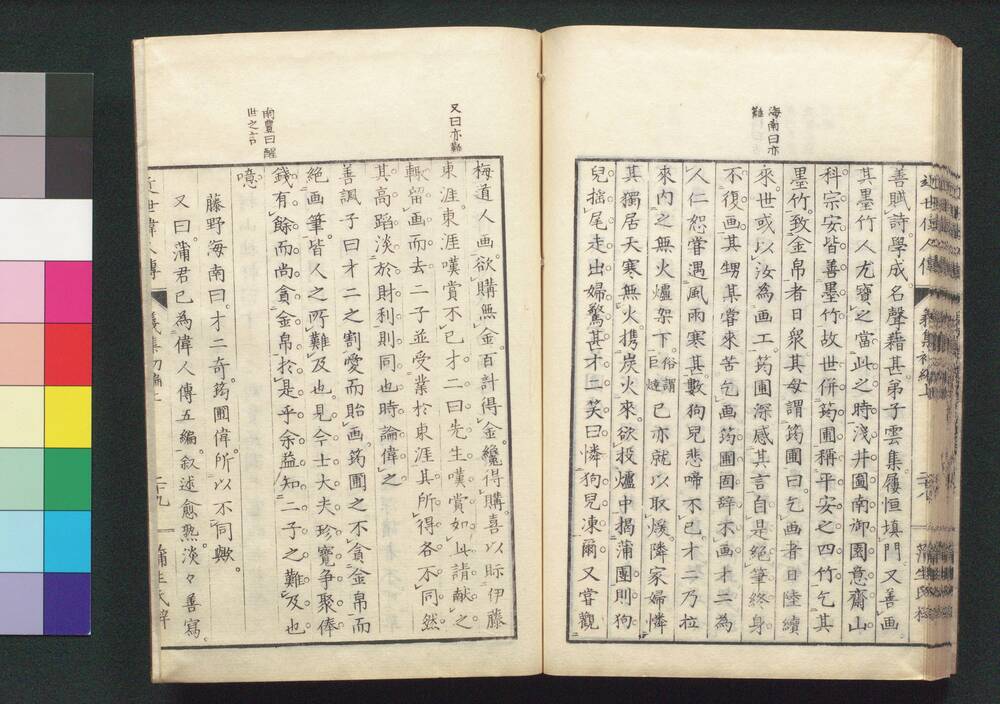 海南曰亦
難
善賦詩學成名聲藉甚弟子雲集屨恒塡門又善画
其墨竹人尤寶之當此之時淺井圖南御園意齋山
科宗安皆善墨竹故世併筠圃稱平安之四竹乞其
墨竹致金帛者日衆其母謂筠圃曰乞画者日陸續
來世或以汝爲画工筠圃深感其言自是絕筆終身
不復画其甥某嘗來苦乞画筠圃固辞不画才二為
人仁恕嘗遇風雨寒甚數狗兒悲啼不已才二乃拉
來内之無火爐架下俗謂巨燵已亦就以取煖隣家婦憐
其獨居天寒無火携炭火來欲投爐中揭蒲團則狗
兒摇尾走出婦驚甚才二笑曰憐狗兒凍爾又嘗觀
又曰亦難
南豊曰醒
世之言
梅道人画欲購無金百計得金纔得購喜以眎伊藤
東涯東涯嘆賞不已才二曰先生嘆賞如此請献之
輙留画而去二子並受業於東涯其所得各不同然
其高蹈淡於財利則同也時論偉之
善諷子曰才二之割愛而貽画筠圃之不貪金帛而
絕画筆皆人之所難及也見今士大夫珍寶争聚俸
錢有餘而尚貪金帛於是乎余益知二子之難及也
噫
藤野海南曰才二奇筠圃偉所以不同歟
又曰蒲君已為偉人傳五編叙述愈熟淡々善寫
近世偉人傳 義集初編上 二十九 蒲生氏梓